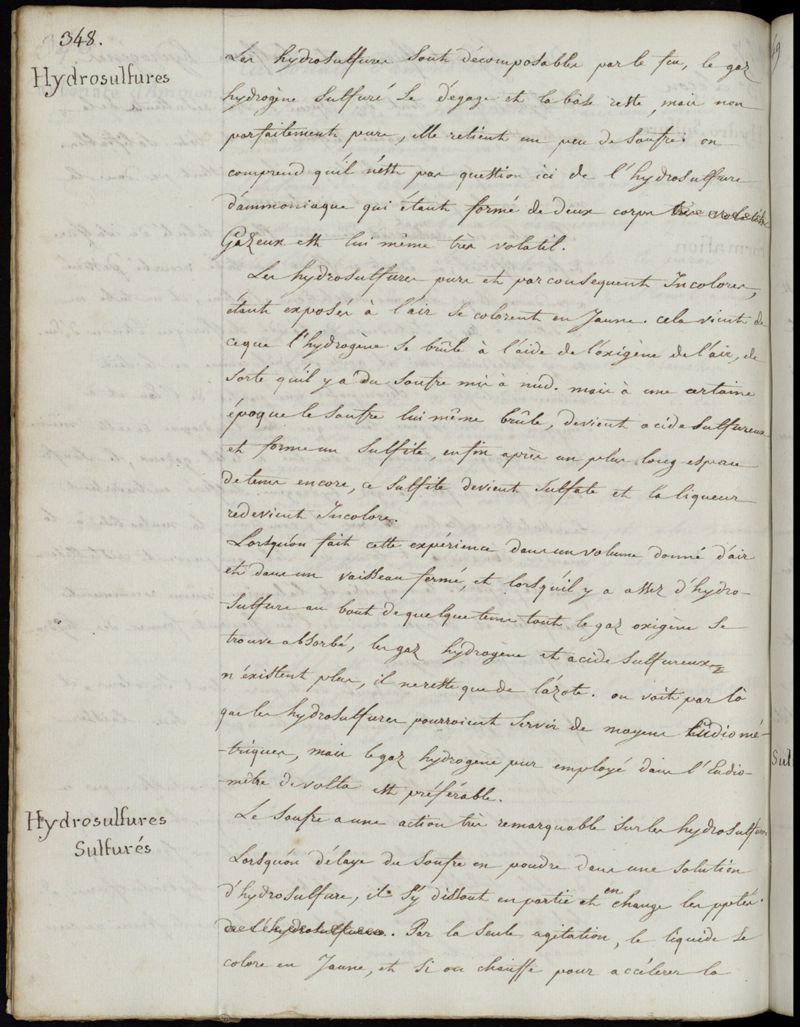 348.
Hydrosulfures
Les hydrosulfures sont décomposables par le feu, le gaz
hydrogène sulfuré se dégage et la base reste, mais non
parfaitement pure, elle retient un peu de soufre. on
comprend qu'il n'est pas question ici de l'hydrosulfure
d'ammoniaque qui étant formé de deux corps
Gazeux est lui même très volatil.
Les hydrosulfures purs et par consequent Incolores,
étant exposés à l'air se colorent en Jaune. cela vient de
ceque l'hydrogène se brûle à l'aide de l'oxigène de l'air, de
sorte qu'il y a du soufre mis à nud. mais à une certaine
époque le soufre lui même brûle, devient acide sulfureux
et forme un sulfite, enfin après un plus long espace
de tems encore, ce sulfite devient sulfate et la liqueur
redevient Incolore.
Lorsqu'on fait cette expérience dans un volume donné d'air
et dans un vaisseau fermé, et lorsqu'il y a assez d'hydro-
sulfure au bout de quelque tems tout le gaz oxigène se
trouve absorbé, les gaz hydrogène et acide sulfureux
n'éxistent plus, il ne reste que de l'azote. on voit par là
que les hydrosulfures pourroient servir de moyens Eudiomé-
-triques, mais le gaz hydrogène pur employé dans l'Eudio-
mètre de volta est préférable.
Hydrosulfures
Sulfurés
Le soufre a une action très remarquable sur les hydrosulfures
Lorsqu'on délaye du soufre en poudre dans une solution
d'hydrosulfure, il s'y dissout en partie et en change les pptés.
des hydrosulfures. Par la seule agitation, le liquide se
colore en Jaune, et si on chauffe pour accélerer la